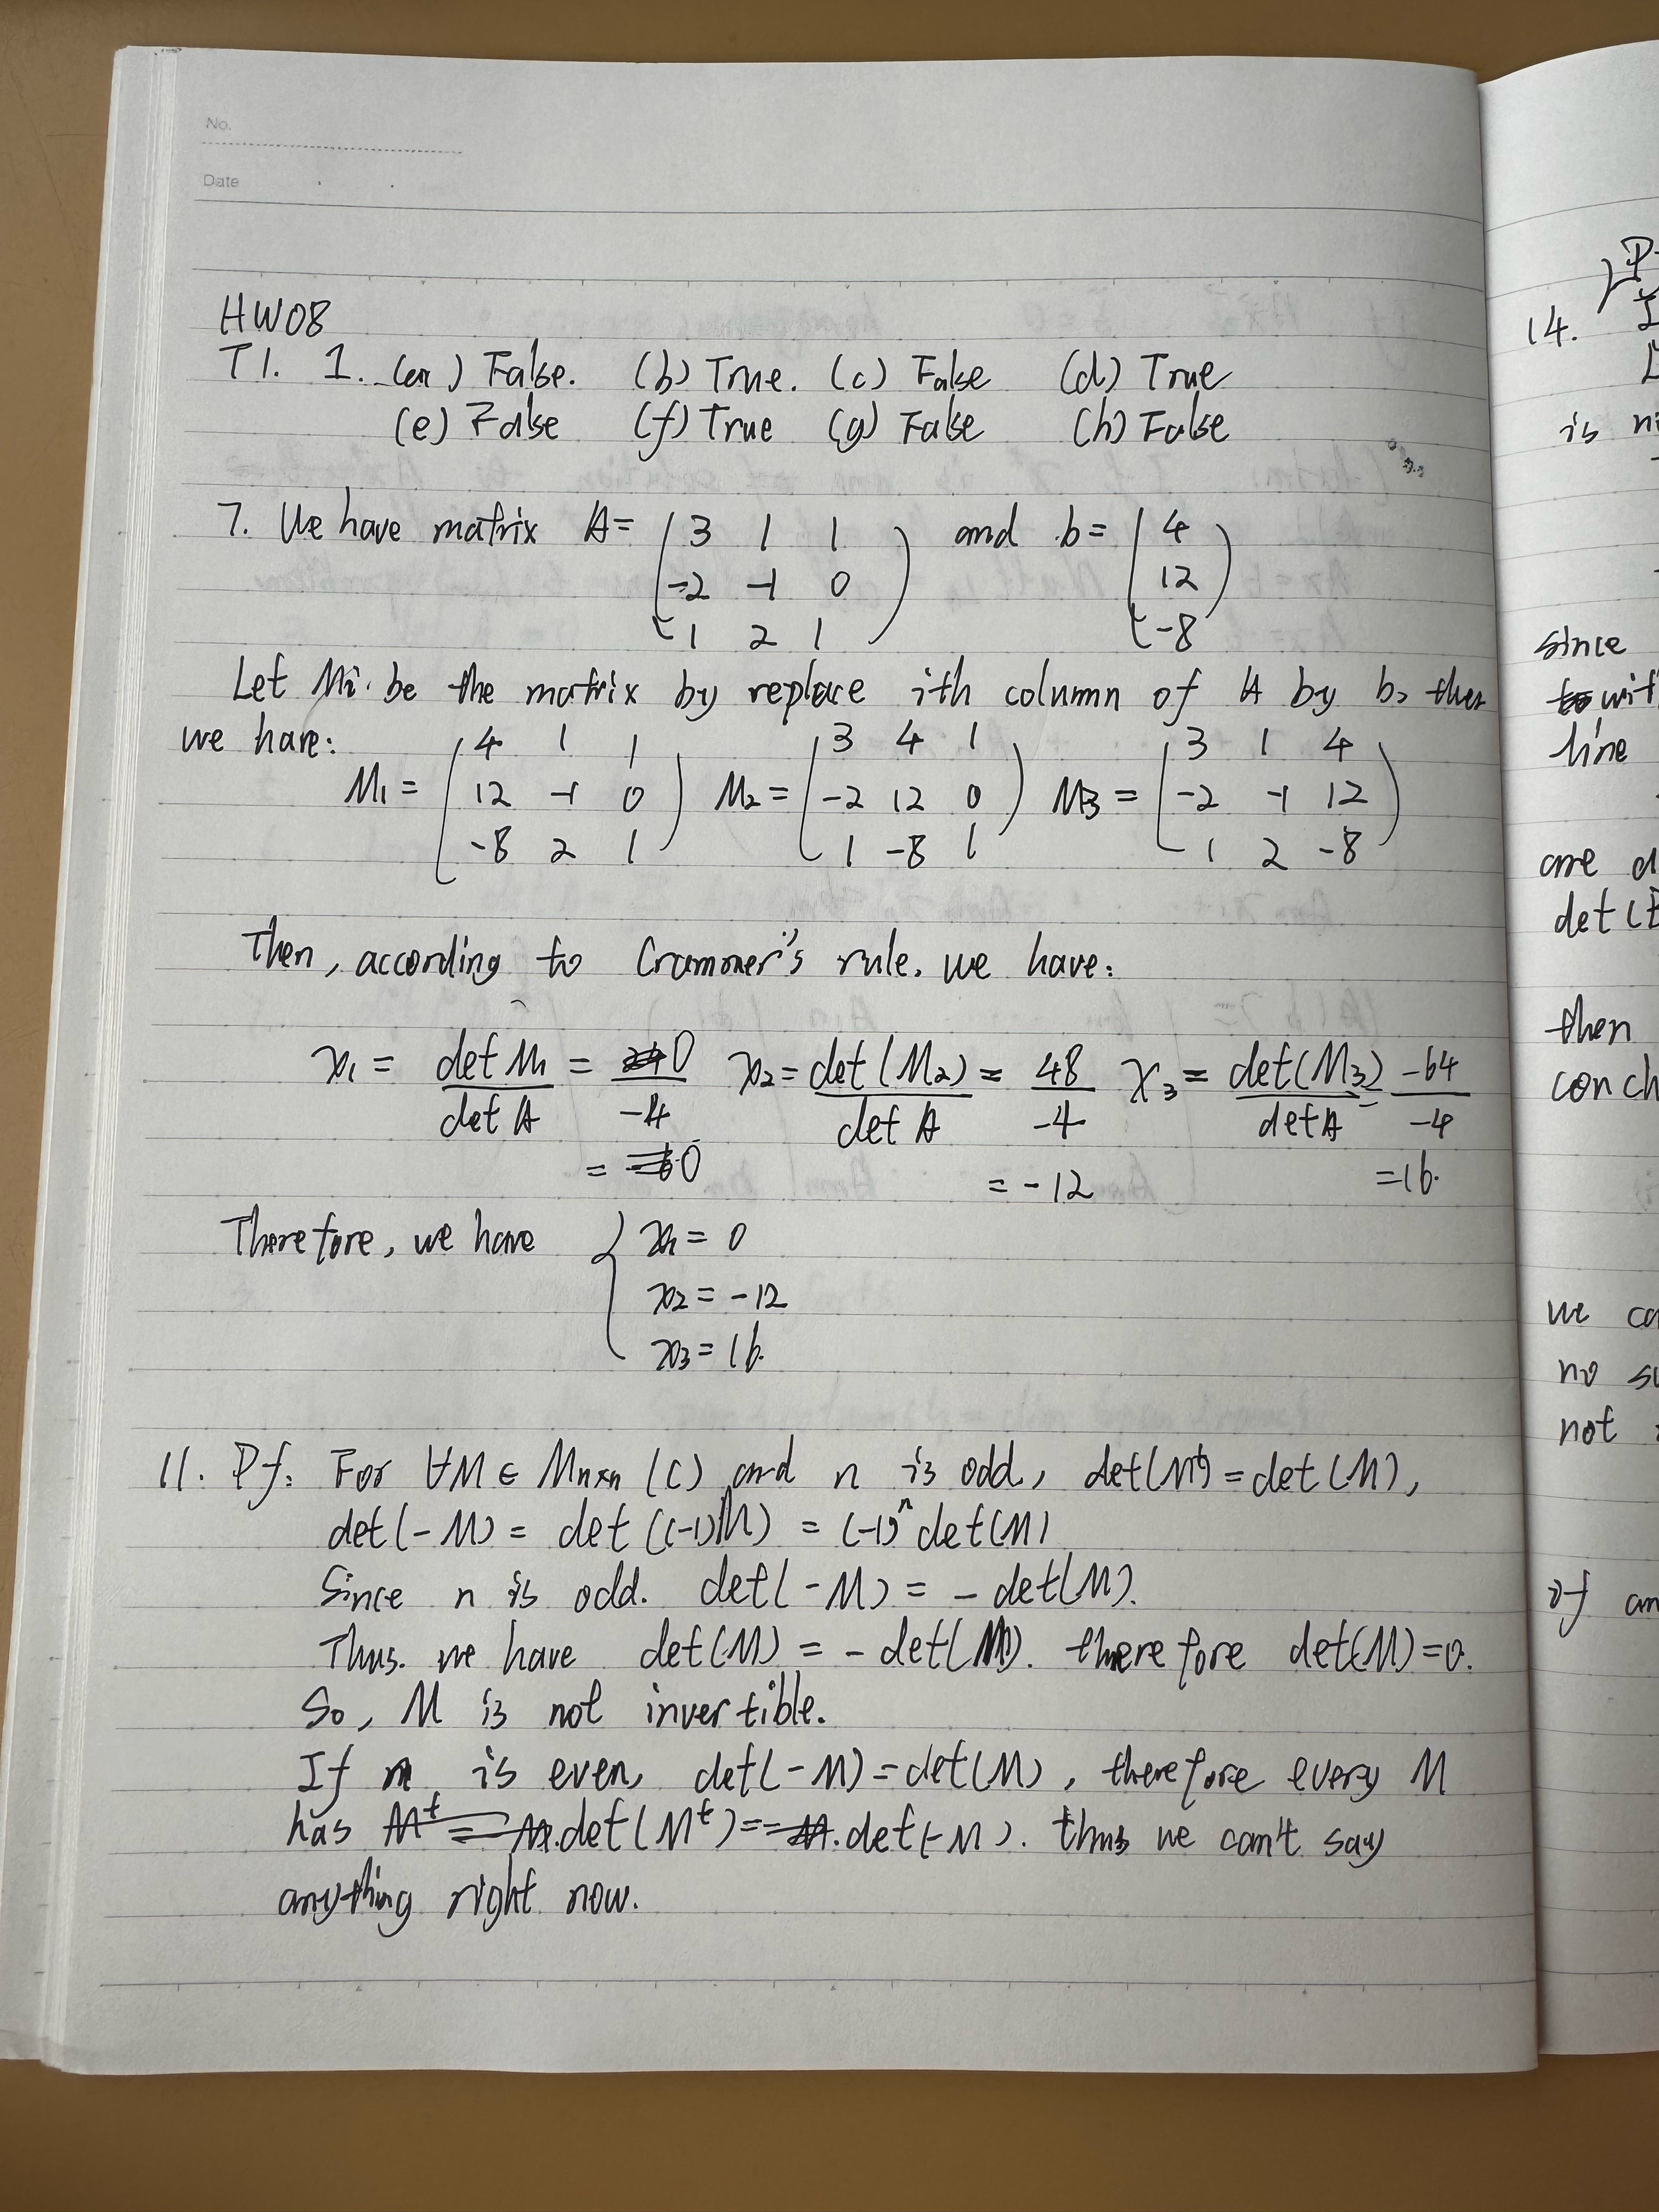 No.
Date
HW08
T1. 1. (a) False. (b) True. (c) False (d) True
(e) False (f) True (g) False (h) False
7. We have matrix A = ( 3 1 1 ) and b = ( 4
-2 -1 0 12
1 2 1 ) -8 )
Let Mi be the matrix by replace ith column of A by b, then
we have:
M1 = ( 4 1 1 M2 = ( 3 4 1 M3 = ( 3 1 4
12 -1 0 -2 12 0 -2 -1 12
-8 2 1 ) 1 -8 1 ) 1 2 -8 )
Then, according to Crammer's rule, we have:
x1 = det M1 / det A = 0 / -4 x2 = det(M2) / det A = 48 / -4 x3 = det(M3) / det A = -64 / -4
= 0 = -12 = 16.
Therefore, we have { x1 = 0
x2 = -12
x3 = 16.
11. Pf: For ∀M ∈ Mn×n (C) and n is odd, det(M^t) = det(M),
det(-M) = det((-1)M) = (-1)^n det(M)
Since n is odd. det(-M) = - det(M).
Thus. we have det(M) = - det(M). therefore det(M)=0.
So, M is not invertible.
If n is even, det(-M) = det(M), therefore every M
has det(M^t) = det(-M). thus we can't say
anything right now.
14.
is
since
line
are
det(
then
we
no
not
of